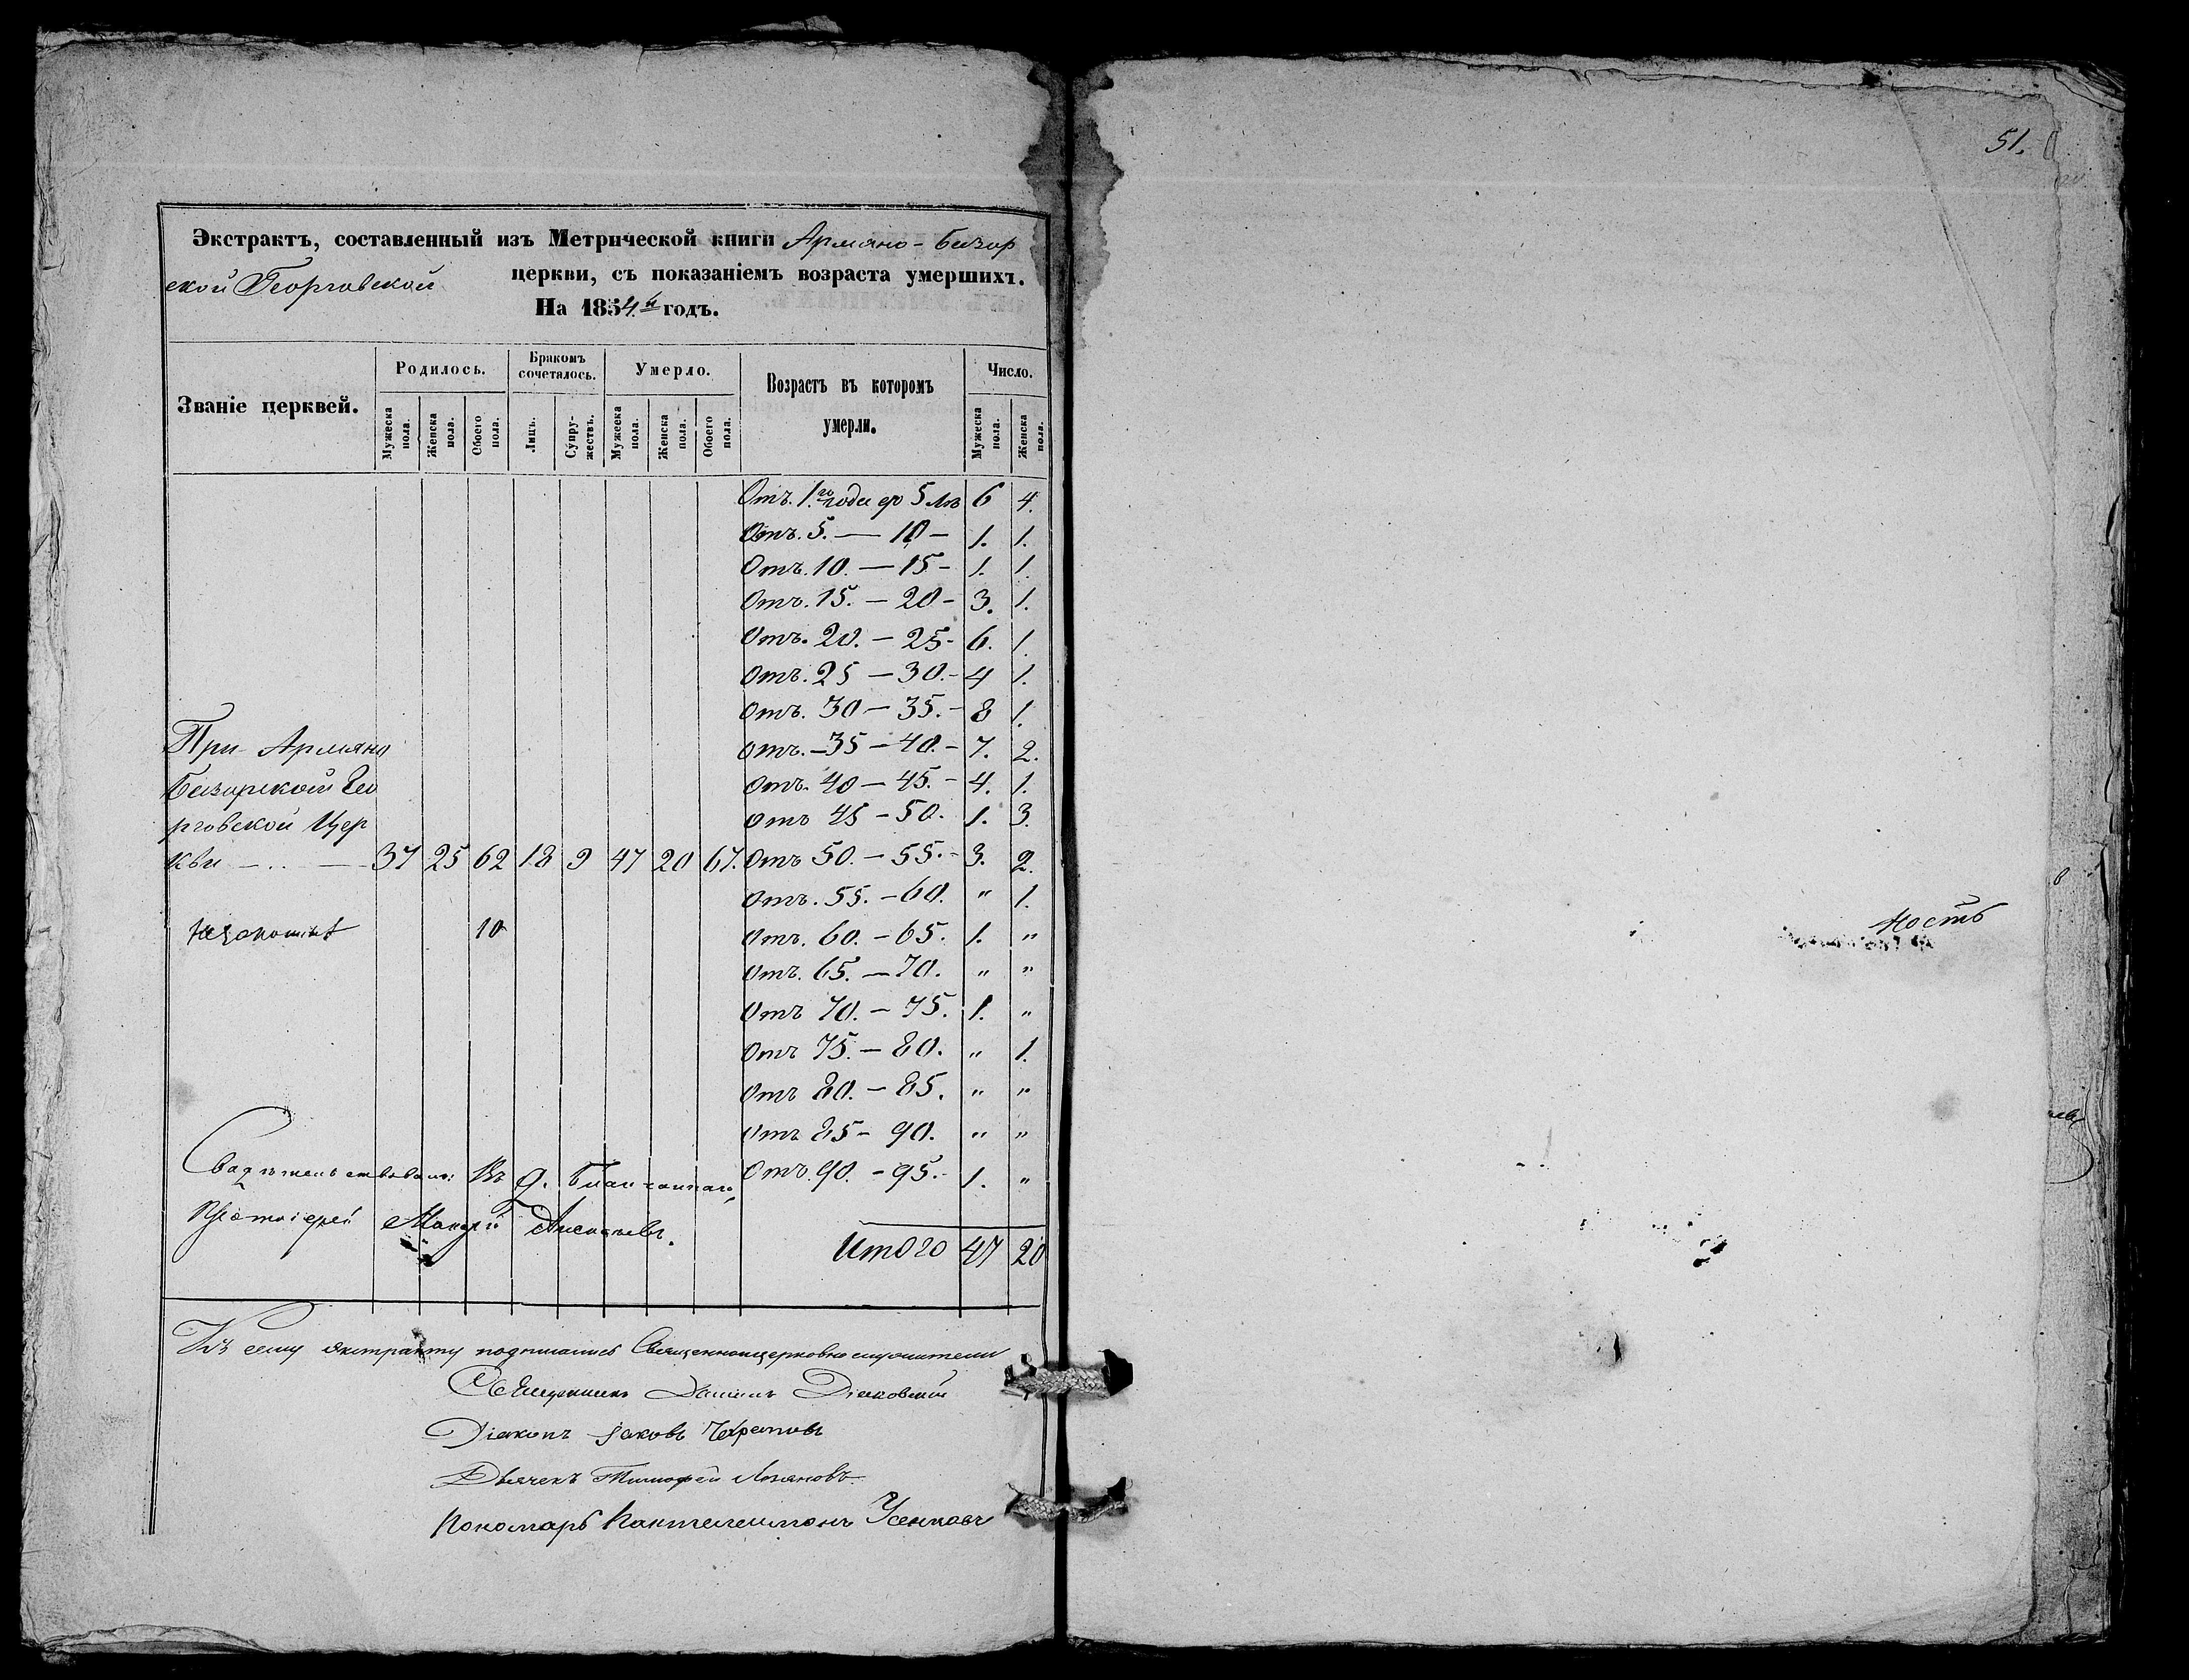 51.
Экстрактъ, составленный изъ Метрической книги Армяно-Базар
ской Георговской церкви, съ показаніемъ возраста умершихъ.
На 1854й годъ.
Званіе церквей. Родилось. Бракомъ сочеталось. Умерло. Возрастъ въ которомъ умерли. Число.
Мужеска пола. Женска пола. Обоего пола. Лицъ. Супружествъ. Мужеска пола. Женска пола. Обоего пола. Мужеска пола. Женска пола.
Отъ. 1.го года до 5 лѣ 6 4.
Отъ. 5. — 10 — 1. 1.
Отъ. 10. — 15 - 1. 1.
Отъ. 15. — 20 - 3. 1.
Отъ. 20. — 25 - 6. 1.
Отъ. 25 — 30. - 4 1.
Отъ. 30 — 35. - 8 1.
При Армяно Отъ. 35 — 40. - 7. 2.
Базарской Гео Отъ. 40 — 45. - 4. 1.
рговской Цер Отъ 45 — 50. 1. 3.
кви — .. — 37 25 62 18 9 47 20 67. Отъ 50. — 55. - 3. 2.
Отъ. 55. — 60. " 1.
10 Отъ. 60. — 65. 1. "
Отъ. 65. — 70. " "
Отъ 70. — 75. 1. "
Отъ 75. — 80. " 1.
Отъ 80. — 85. " "
Отъ 85 - 90. " "
Свидѣтельствовалъ: Отъ. 90. - 95. - 1. "
Протоіерей
Итого 47 20
Къ сему экстракту подписались Священноцерковнослужители
Священникъ Даніилъ Дiаковскій
Діаконъ Іаковъ
Дьячекъ Тимофей Лозановъ
Пономарь Пантелеимонъ Усенковъ
ность